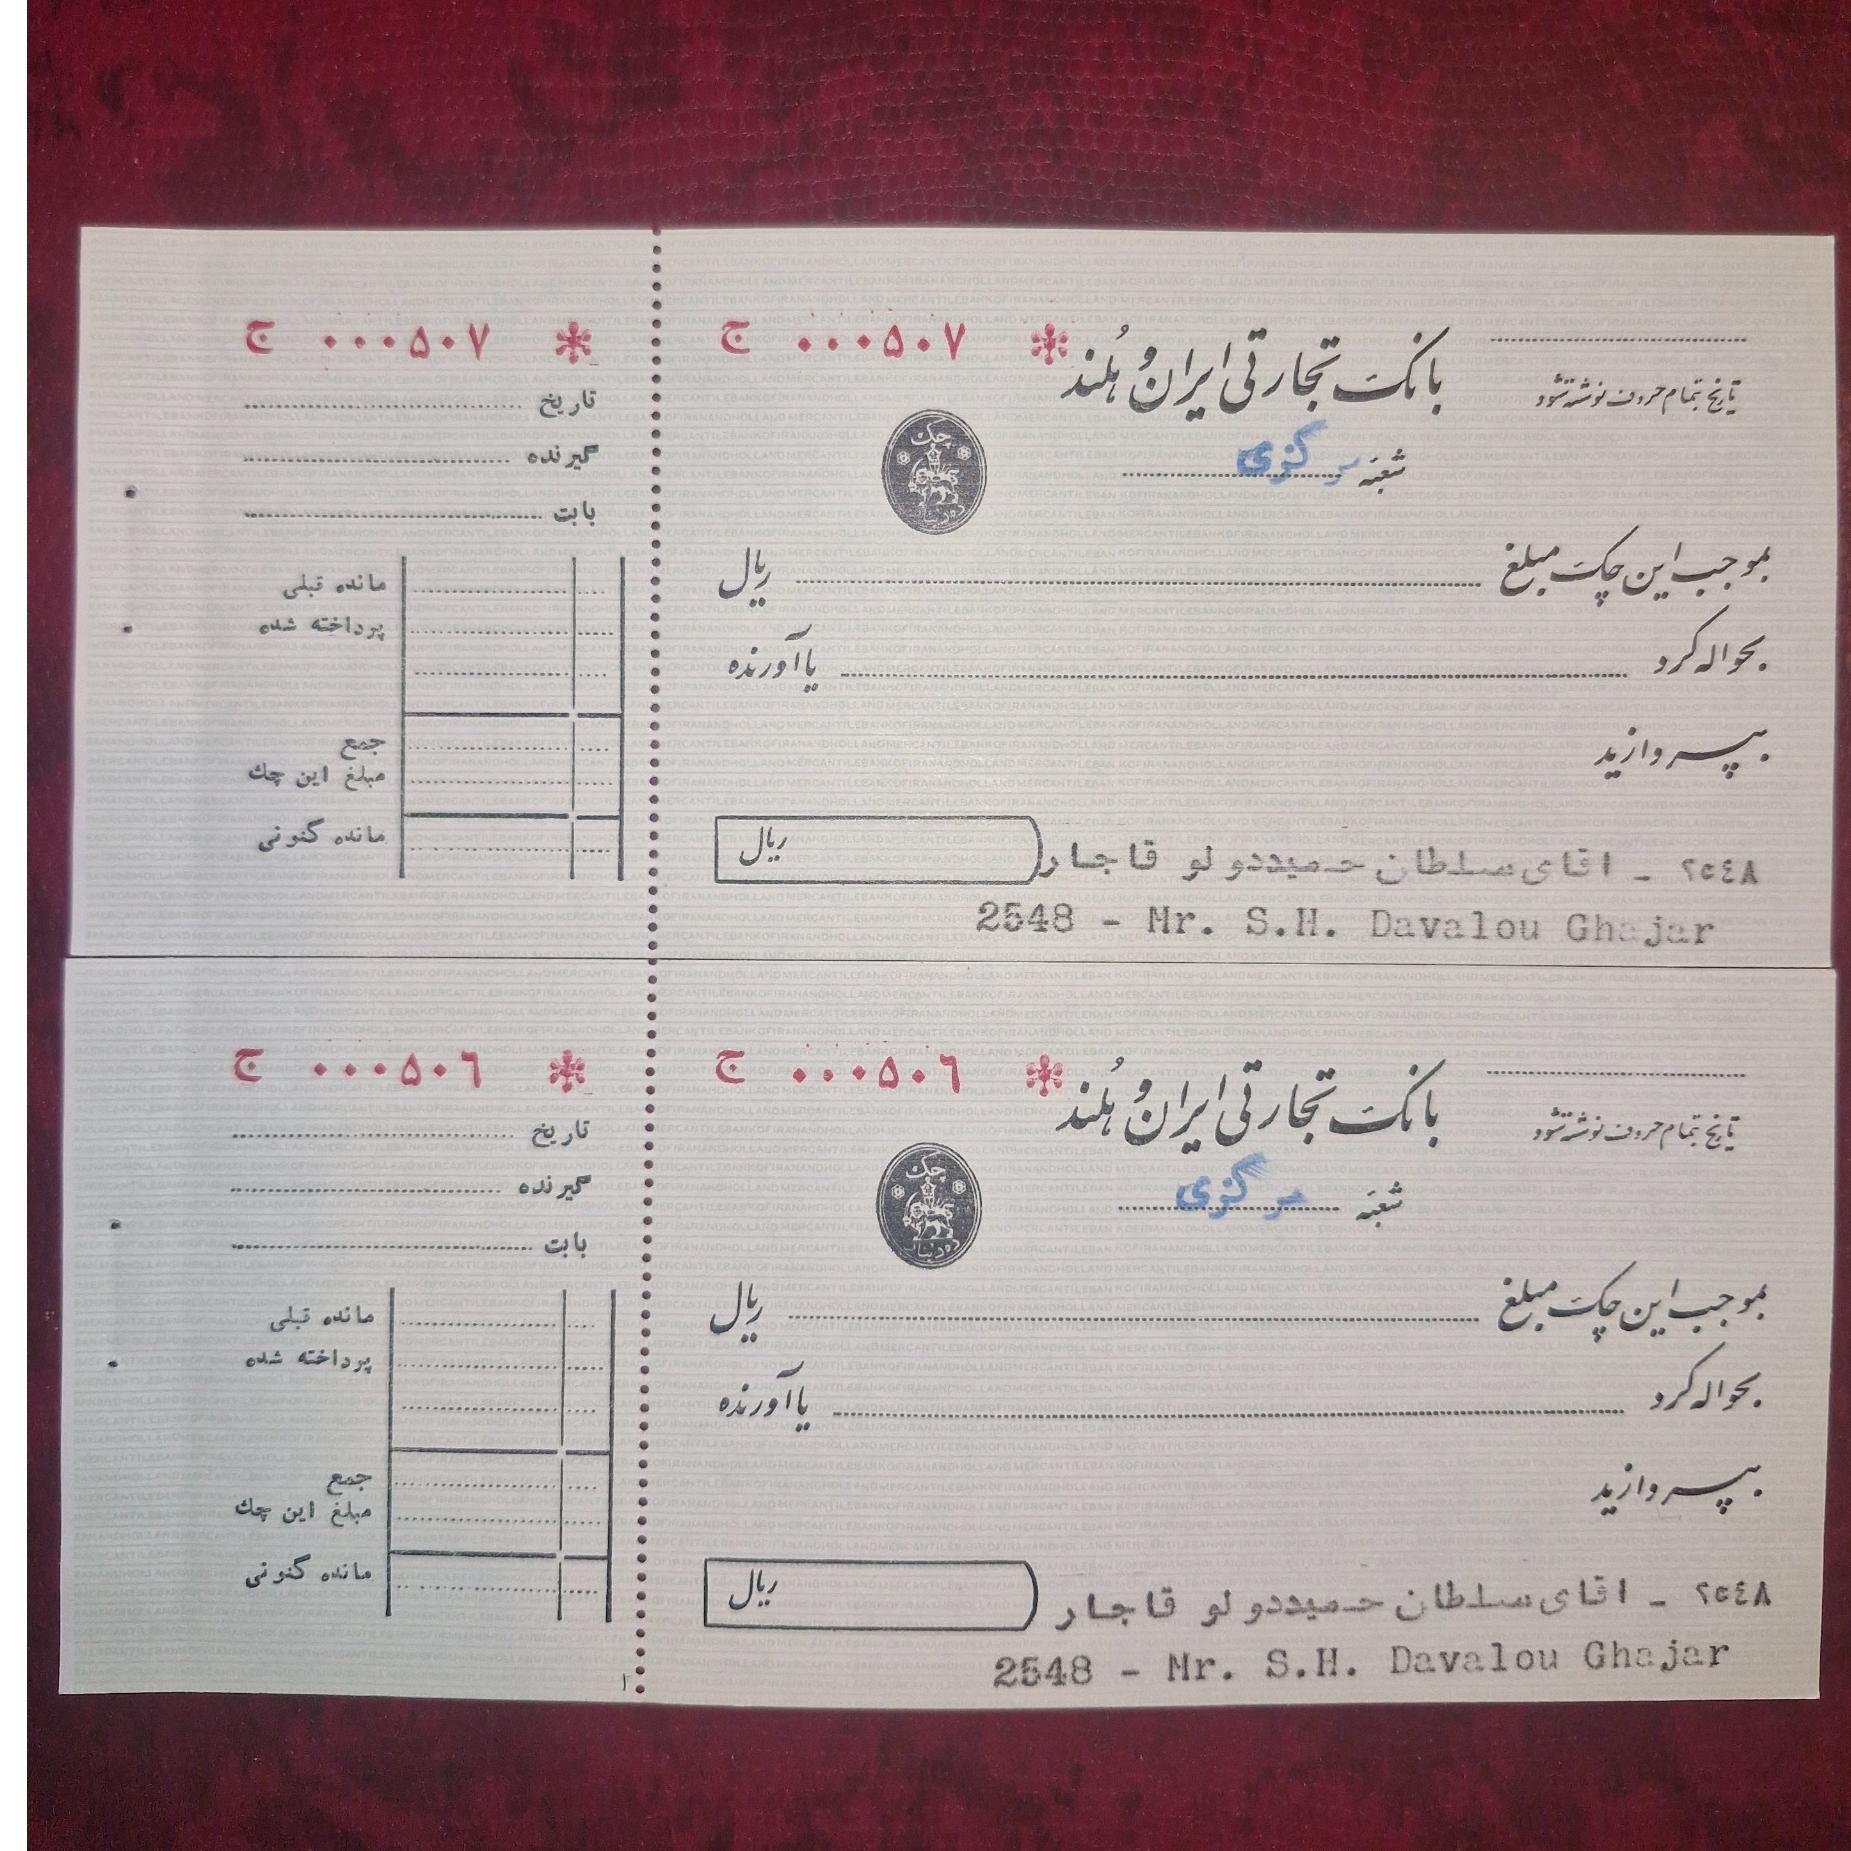 * ۰۰۰۵۰۷ ج
تاریخ
گیرنده
بابت
مانده قبلی
پرداخته شده
جمع
مبلغ این چك
مانده کنونی
* ۰۰۰۵۰۷ ج
بانک تجارتی ایران و هلند
تاریخ بتمام حروف نوشته شود
شعبه مرکزی
چک
ده دینار
بموجب این چک مبلغ ریال
بحواله کرد یا آورنده
بپردازید
ریال
۲۵٤۸ - اقای سلطان حمیددولو قاجار
2548 - Mr. S.H. Davalou Ghajar
* ۰۰۰۵۰٦ ج
تاریخ
گیرنده
بابت
مانده قبلی
پرداخته شده
جمع
مبلغ این چك
مانده کنونی
۱
* ۰۰۰۵۰٦ ج
بانک تجارتی ایران و هلند
تاریخ بتمام حروف نوشته شود
شعبه مرکزی
چک
ده دینار
بموجب این چک مبلغ ریال
بحواله کرد یا آورنده
بپردازید
ریال
۲۵٤۸ - اقای سلطان حمیددولو قاجار
2548 - Mr. S.H. Davalou Ghajar